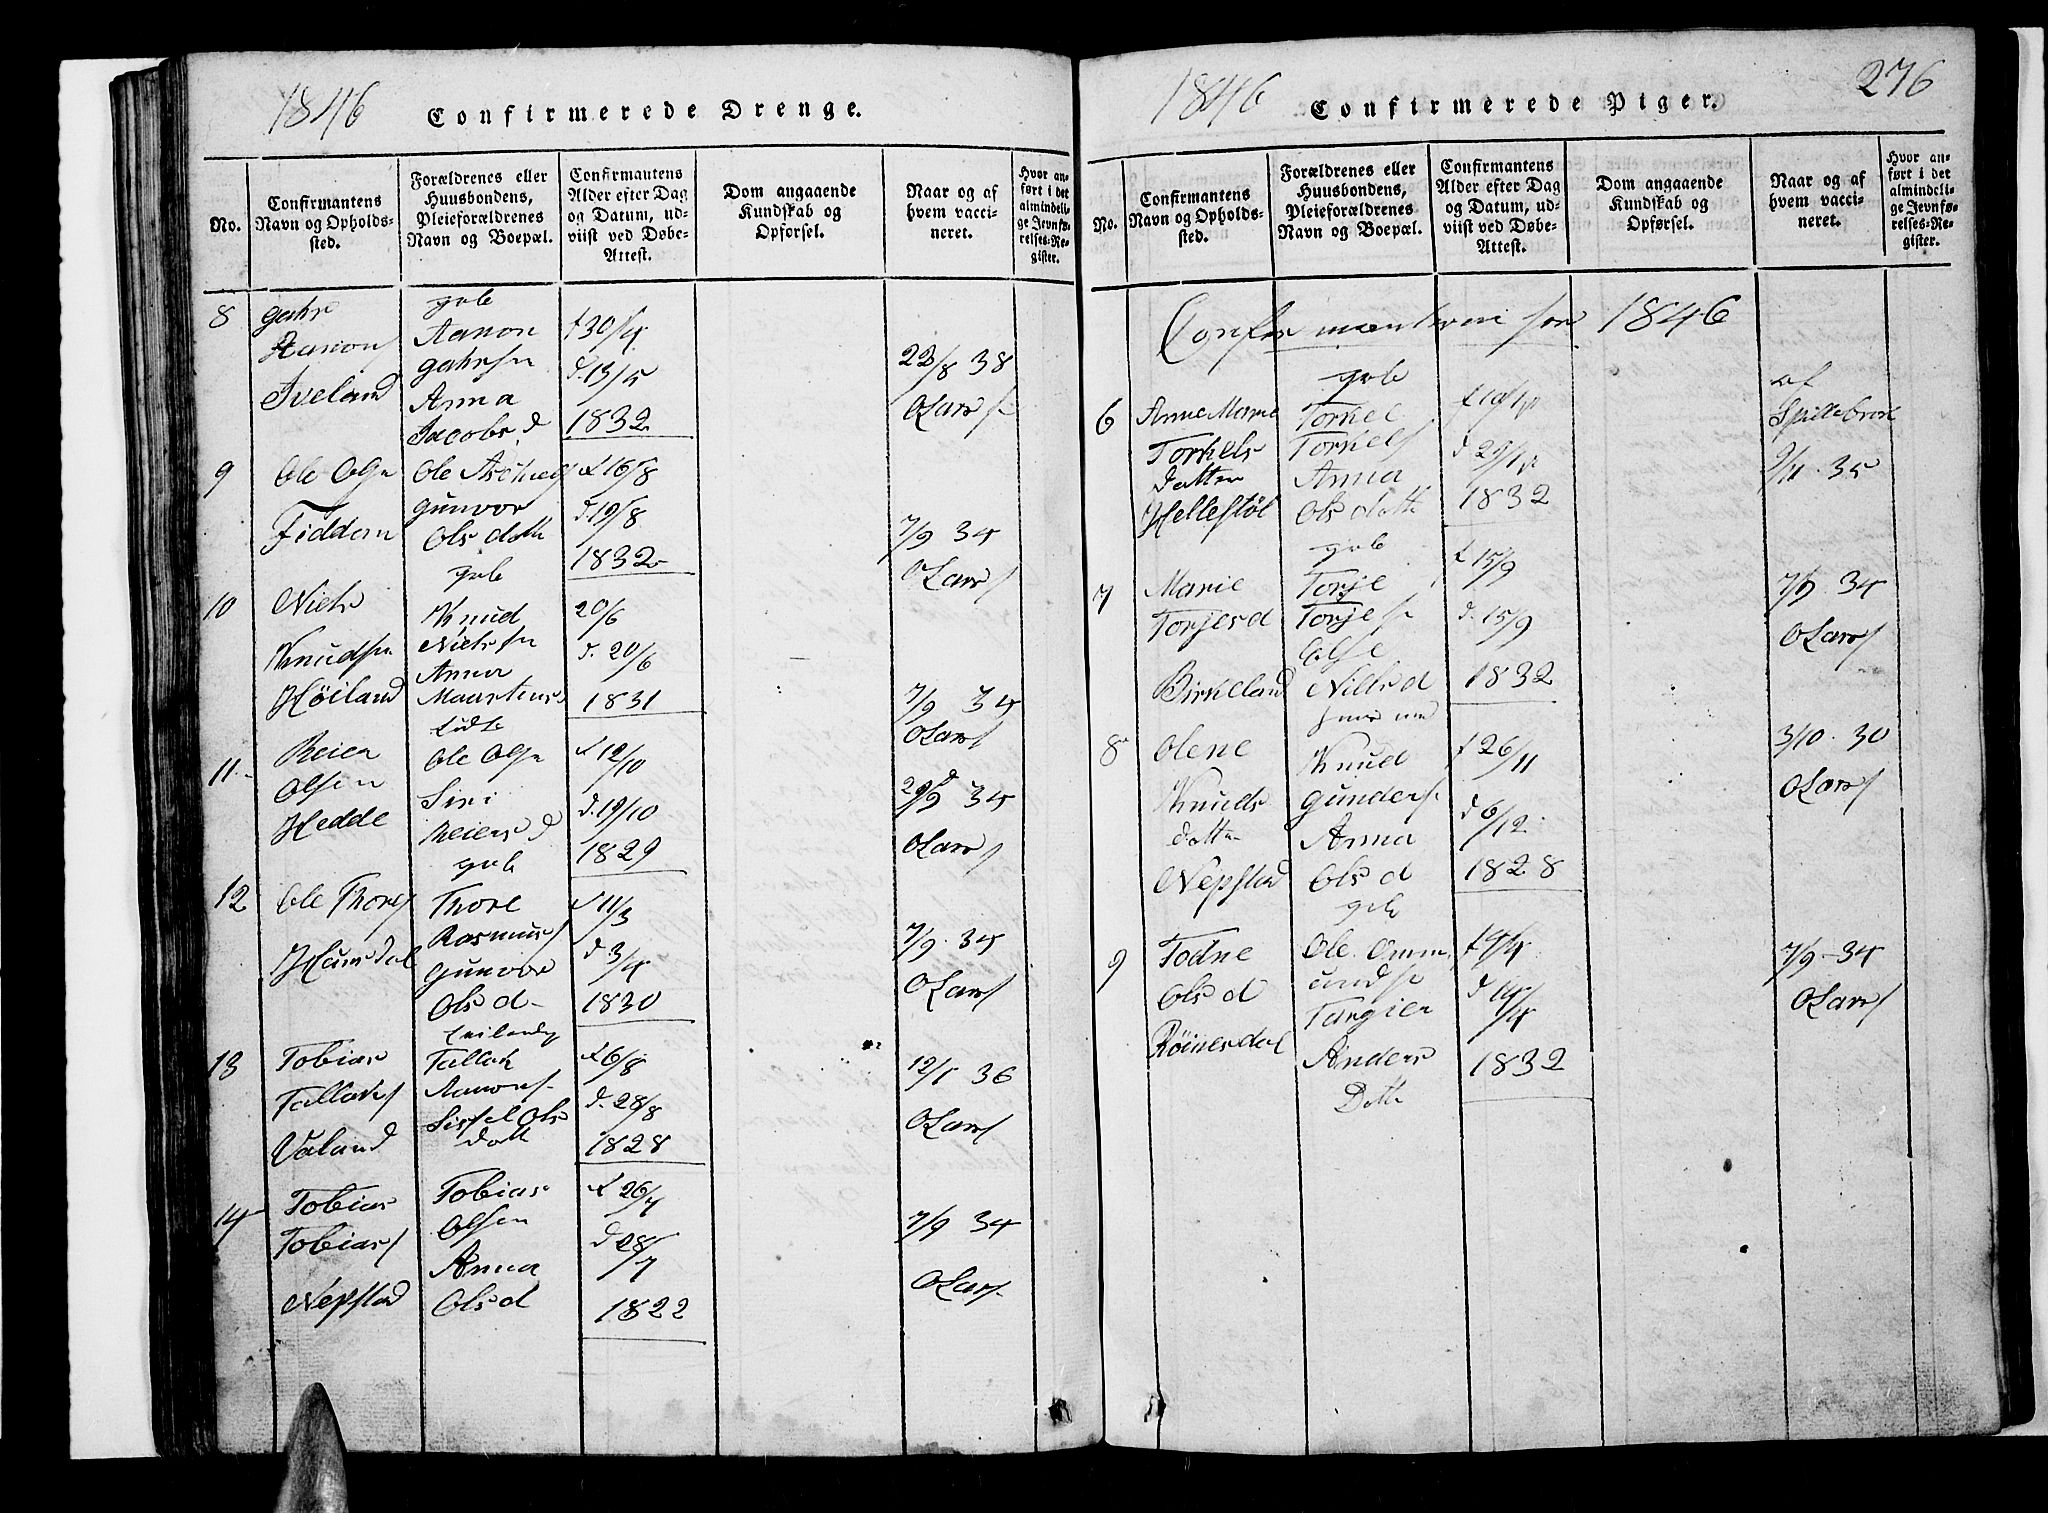 1846
Confirmerede Drenge.
No.
Confirmantens Navn og Opholds-sted.
Forældrenes eller Huusbondens, Pleieforældrenes Navn og Boepæl.
Confirmantens Alder efter Dag og Datum, ud-viist ved Døbe-Attest.
Dom angaaende Kundskab og Opførsel.
Naar og af hvem vacci-neret.
Hvor an-ført i det almindeli-ge Jevnfø-relses-Re-gister.
8
Aanon
Iveland
Aanon
Anna
Jacobs d
f 30/4
d. 13/5
1832
22/8 38
OLars
9
Ole Olsn
Fiddan
Ole
Gunvor
Ols datt
f 16/8
d. 19/8
1832
7/9 34
OLars
10
Niels
Knudsn
Høiland
Knud
Nielssn
Anna
20/6
d. 20/6
1831
7/9 34
OLars
11
Reier
Olsen
Hedde
Ole Olsn
Siri
Reiers d
f 12/10
d. 19/10
1829
29/9 34
OLars
12
Ole Thores
Thore
Rasmus
Gunvor
Ols d
f 11/3
d 3/4
1830
7/9. 34
OLars
13
Tobias
Tallaks
Valand
Tallak
Aanons
Sissel Ols
datt
f 6/8
d. 28/8
1828
12/1 36
OLars
14
Tobias
Tobias
Nepstad
Tobias
Olsen
Anna
Ols d
f 26/7
d 28/7
1822
7/9 34
OLars
1846
Confirmerede Piger.
276
No.
Confirmantens Navn og Opholds-sted.
Forældrenes eller Huusbondens, Pleieforældrenes Navn og Boepæl.
Confirmantens Alder efter Dag og Datum, ud-viist ved Døbe-Attest.
Dom angaaende Kundskab og Opførsel.
Naar og af hvem vacci-neret.
Hvor an-ført i det almindeli-ge Jevnfø-relses-Re-gister.
1846
6
Anne Marie
Torkels
datter
Hellestøl
Torkel
Torkels
Anna
Ols datt
1832
af
9/11. 35
7
Marie
Torjes d
Birkeland
Torje
Torjes
Else
Nills d
f 15/9
d. 15/9
1832
7/9 34
OLars
8
Olene
Knuds
datter
Nepstad
Knud
Gunders
Anna
Ols d
f 26/11
d 6/12
1828
3/10. 30
OLars
9
Todne
Ols d
Røinesdal
Ole Omm
unds
Tangier
Anders
Datte
f 9/4
d 14/4
1832
7/9 - 34
OLars